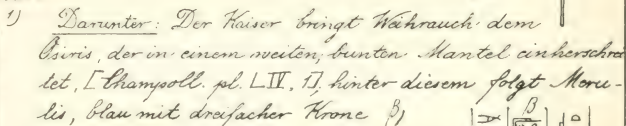 1) Darunter: Der Kaiser bringt Weihrauch dem
Osiris, der in einem weiten, bunten Mantel einherschrei
tet, [Champoll. pl. LIV, 1], hinter diesem folgt Meru-
lis, blau mit dreifacher Krone β)
β